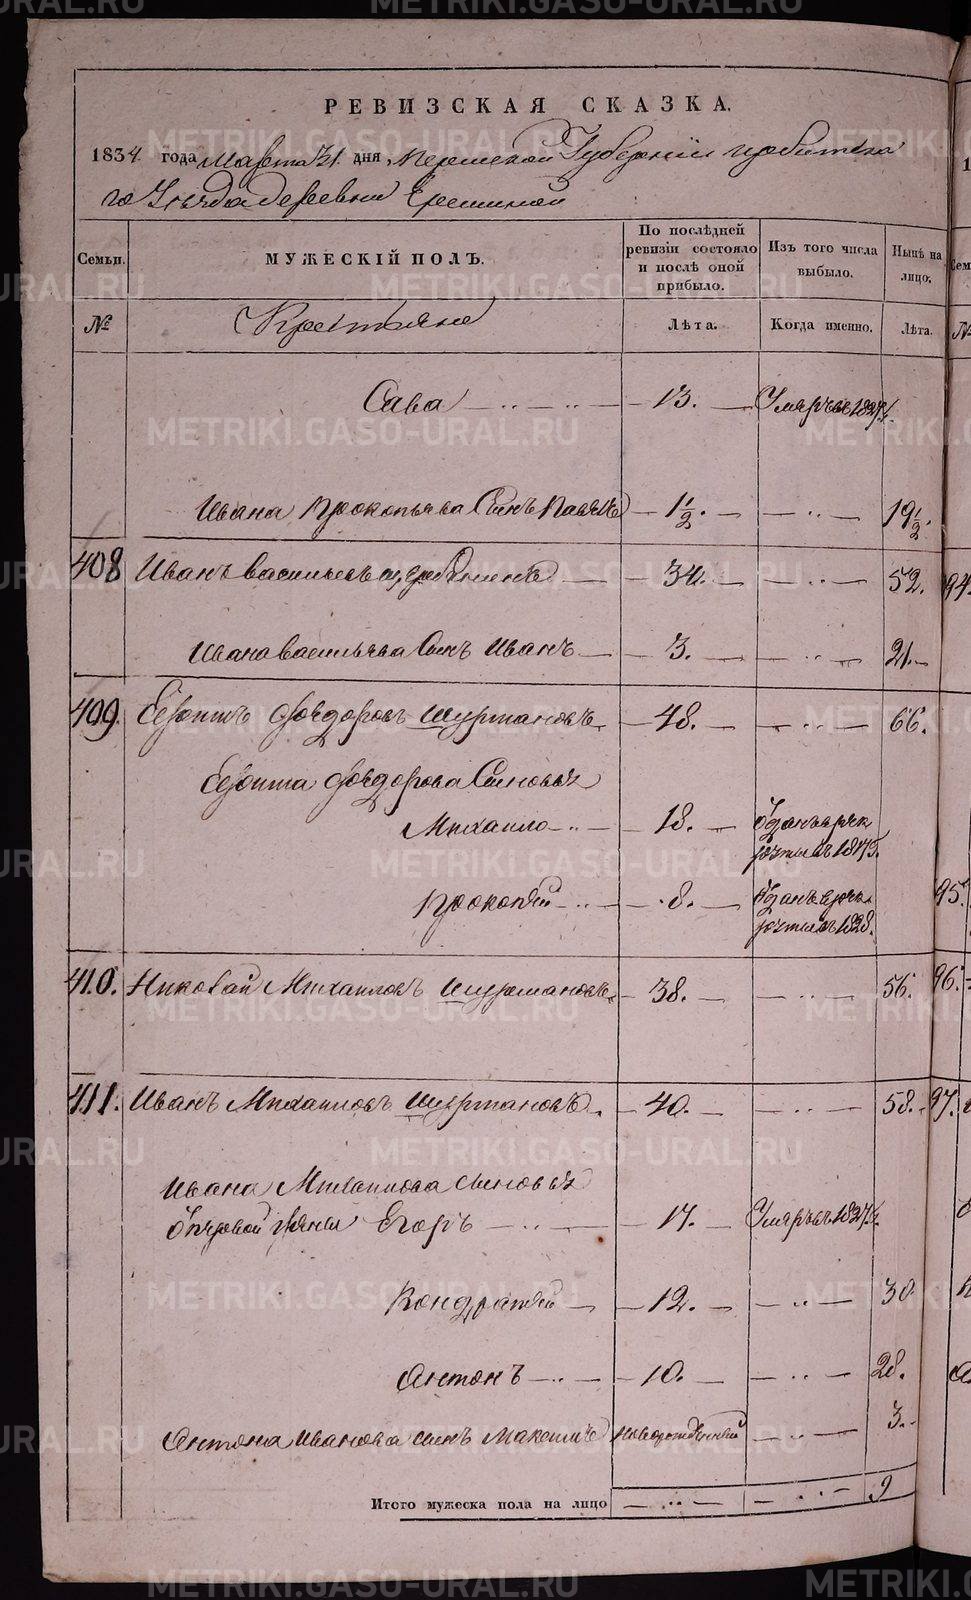 РЕВИЗСКАЯ СКАЗКА.
1834. года Марта 31. дня Пермской Губернiи Ирбитска
го Уѣзда деревни Ереминой
Семьи. МУЖЕСКІЙ ПОЛЪ. По послѣдней ревизіи состояло и послѣ оной прибыло. Изъ того числа выбыло. Нынѣ на лицо.
№ Крестьяне Лѣта. Когда именно. Лѣта.
Сава 13. Умеръ въ 1827.
Ивана Прокопьева Сынъ Павелъ 1½. 19½.
408 Иванъ Васильевъ 34. 52.
Ивана Васильева Сынъ Иванъ 3. 21.
409. Федоровъ Шурмановъ. 48. 66.
Федорова Сыновья
Михайло 18. Отданъ въ рек
руты въ 181
Прокопiй 8. Отданъ въ рек
руты въ 1828.
410. Николай Михайловъ Шурмановъ. 38. 56.
411. Иванъ Михайловъ Шурмановъ. 40. 58.
Ивана Михайлова сыновья
Отъ первой жены Егоръ 17. Умеръ въ 1827.
Кондратiй 12. 30
Антонъ 10. 28.
Антона Иванова сынъ Максимъ Новорожденный 3.
Итого мужеска пола на лицо 9
METRIKI.GASO-URAL.RU